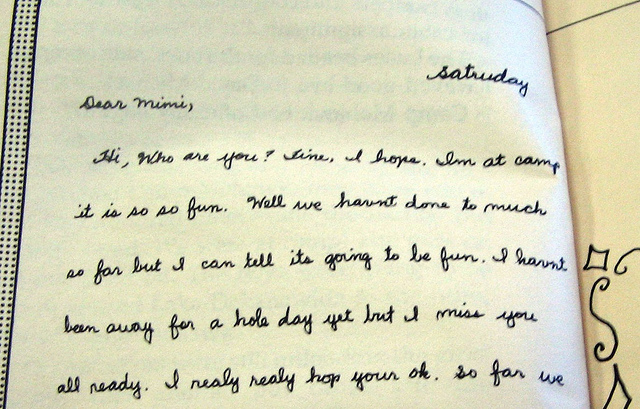 satruday
Dear mimi,
Hi, Who are you? Fine, I hope. Im at camp
it is so so fun. Well we havnt done to much
so far but I can tell its going to be fun. I havnt
been away for a hole day yet but I miss you
all ready. I realy realy hop your ok. so far we